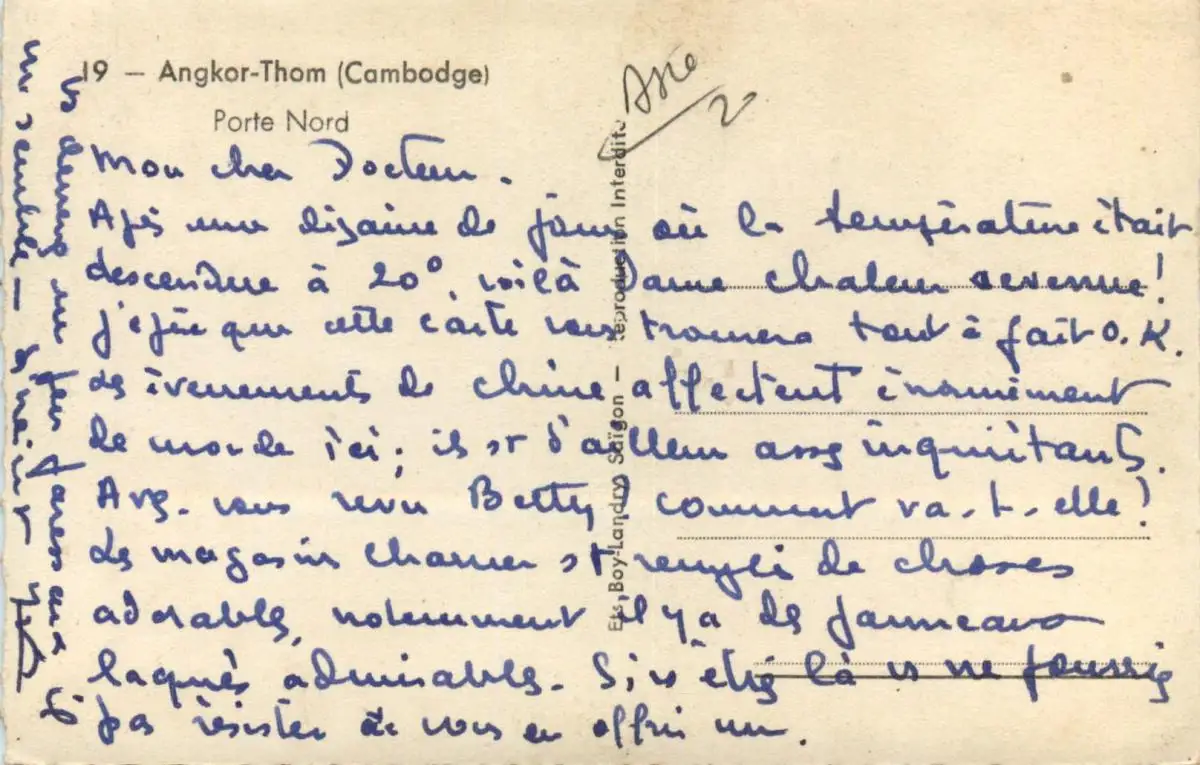 19 — Angkor-Thom (Cambodge)
Porte Nord
Asie
2
Mon cher Docteur.
Après une dizaine de jours où la température était
descendue à 20°, voilà Dame chaleur revenue!
J'espère que cette carte vous trouvera tout à fait O.K.
Les évenements de Chine affectent énormément
le monde ici; ils st d'ailleurs assez inquiétants.
Avez-vous revu Betty? comment va-t-elle?
Le magasin est rempli de choses
adorables, notemment il y a des panneaux
laqués admirables. Si vs étiez là vs ne pourriez
pas résister de vous en offrir un.
vs devenez un peu paresseux
me semble
Ets Boy-Landry Saïgon — Reproduction Interdite